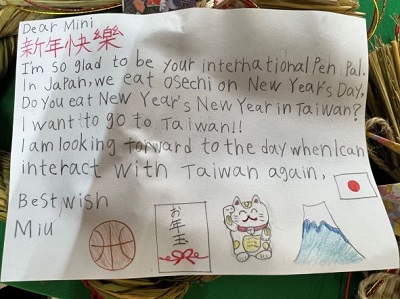 Dear Mini
新年快樂
I'm so glad to be your international Pen Pal.
In Japan, we eat osechi on New Year's Day.
Do you eat New Year's New Year in Taiwan?
I want to go to Taiwan!!
I am looking forward to the day when I can
interact with Taiwan again,
Best wish
Miu
お年玉